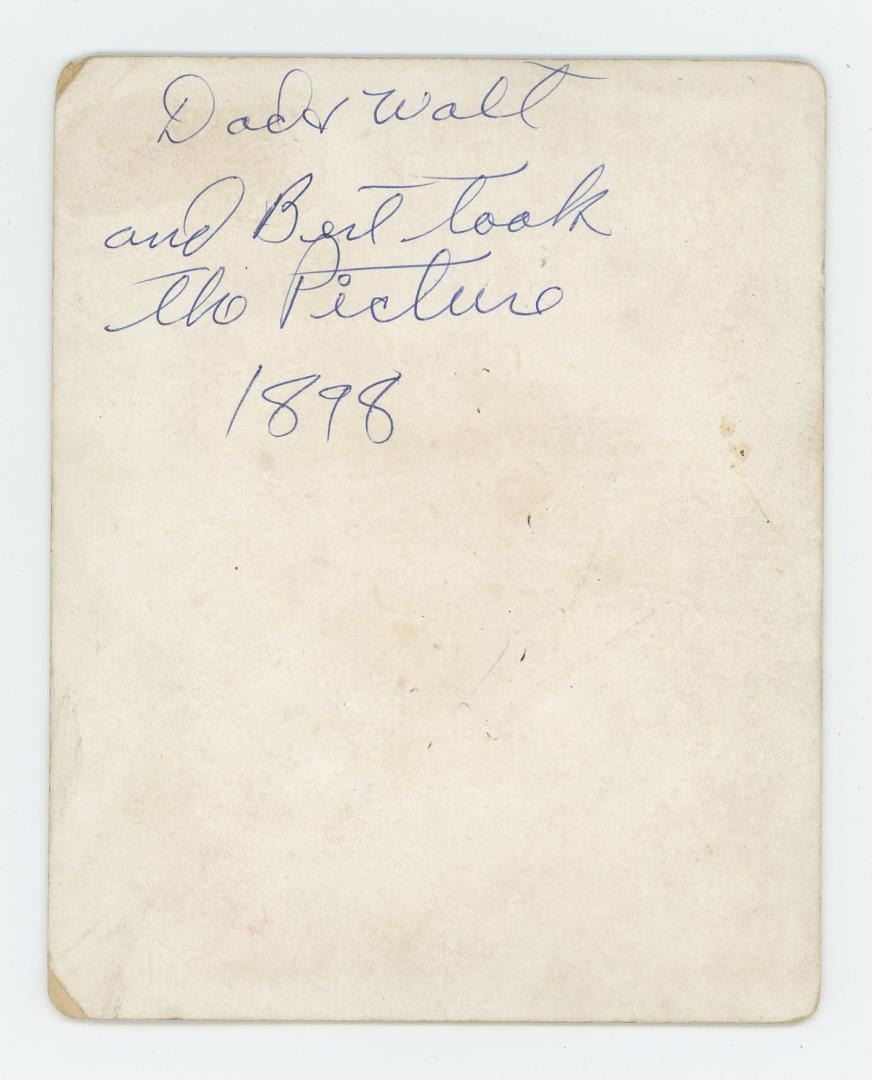 Dad & Walt
and Bert took
the Picture
1898